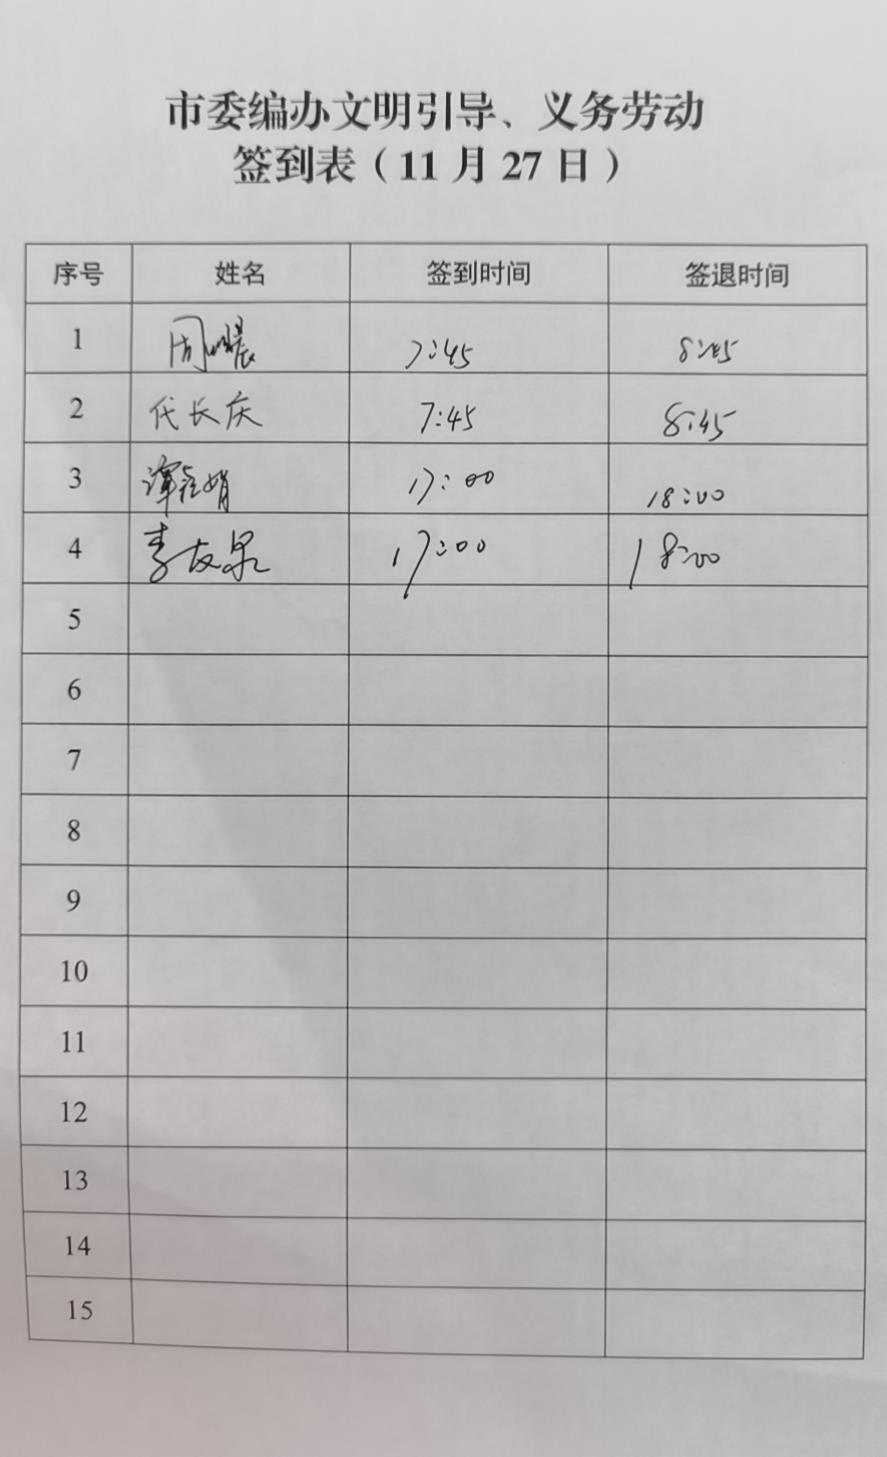 市委编办文明引导、义务劳动
签到表（11月27日）
序号 姓名 签到时间 签退时间
1 周 7:45 8:45
2 代长庆 7:45 8:45
3 17:00 18:00
4 李友泉 17:00 18:00
5
6
7
8
9
10
11
12
13
14
15